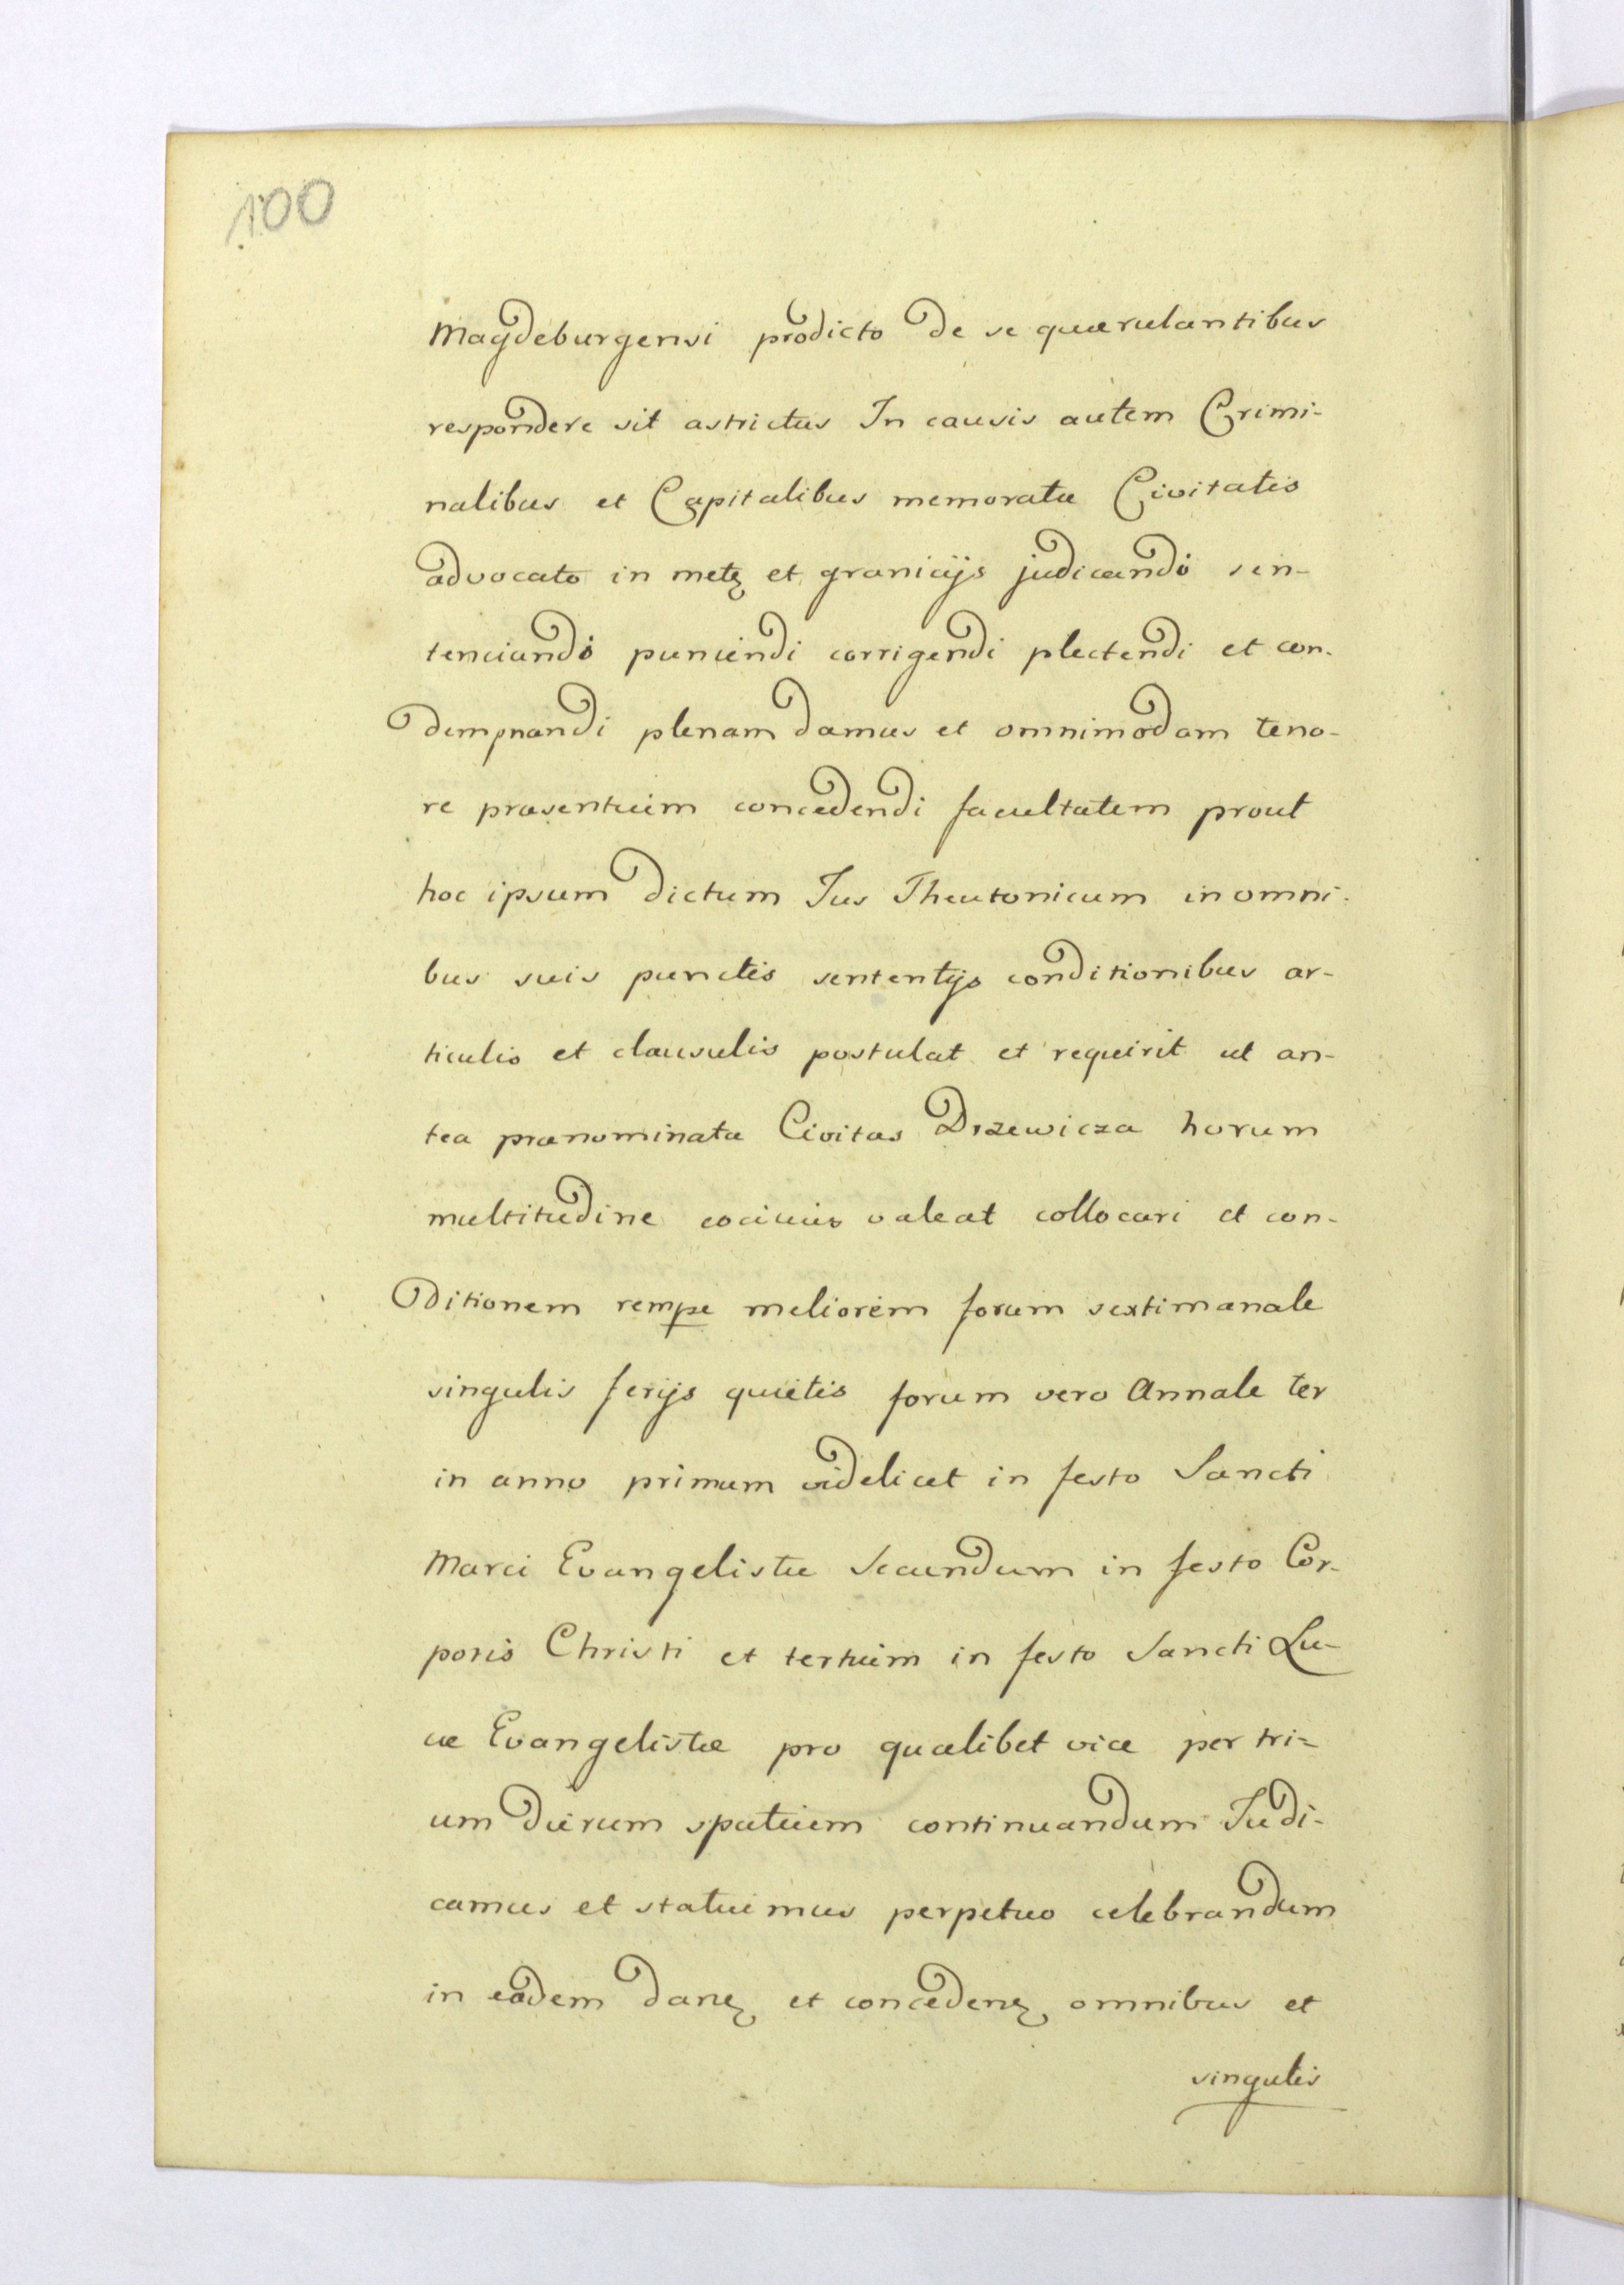 100
Magdeburgensi prodicto de se quærulantibus
respondere sit astrictus In causis autem Crimi-
nalibus et Capitalibus memoratæ Civitatis
advocato in metꝫ et granicijs judicandi sen-
tenciandi puniendi corrigendi plectendi et con-
dempnandi plenam damus et omnimodam teno-
re præsentium concedendi facultatem prout
hoc ipsum dictum Jus Theutonicum in omni-
bus suis punctis sententijs conditionibus ar-
ticulis et clausulis postulat et requirit ut an-
tea prænominata Civitas Drzewicza horum
multitudine valeat collocari et con-
ditionem rempe meliorem forum sextimanale
singulis ferijs quietis forum vero Annale ter
in anno primum videlicet in festo Sancti
Marci Evangelistæ Secundum in festo Cor-
poris Christi et tertium in festo Sancti Lu-
cæ Evangelistæ pro qualibet vice per tri-
um dierum spatium continuandum Judi-
camus et statuimus perpetuo celebrandum
in eadem danꝫ et concedenꝫ omnibus et
singulis